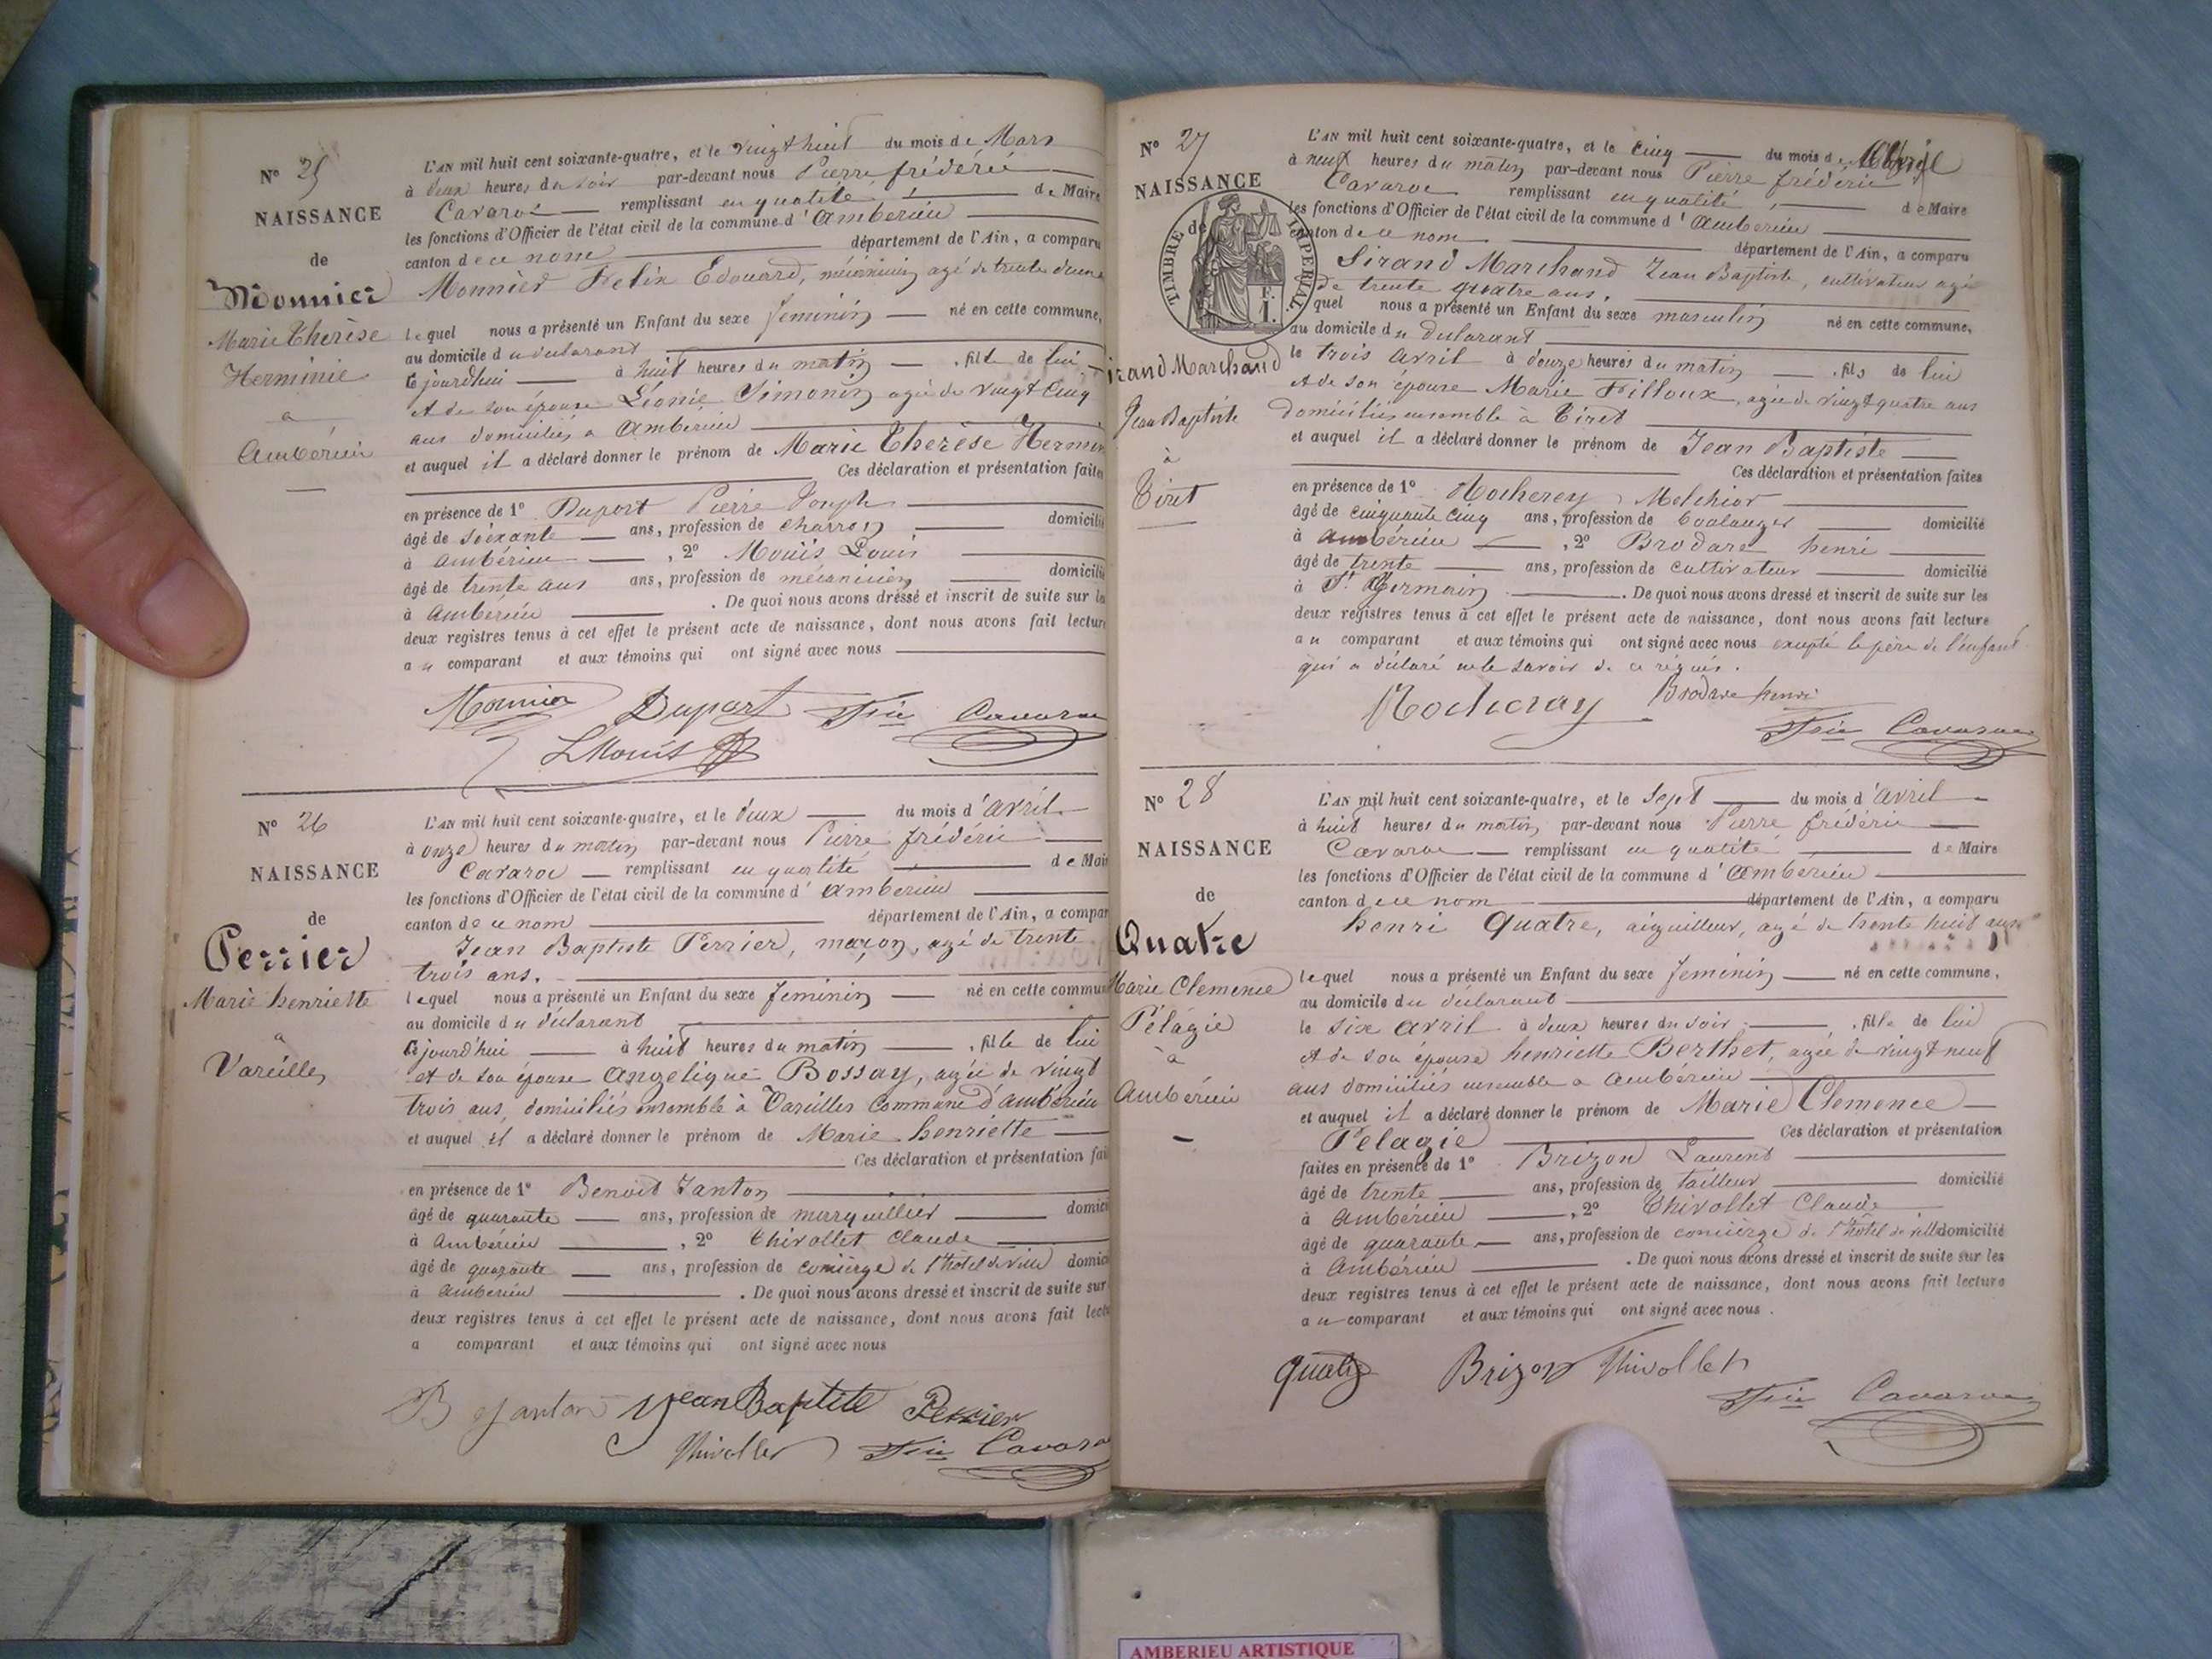 N° 25
NAISSANCE
de
Monnier
Marie Therèse
Herminie
a
Ambérieu
L'AN mil huit cent soixante-quatre, et le vingt huit du mois de Mars
à deux heures du soir par-devant nous Pierre frédéric
Cavaroc remplissant en qualité de Maire
les fonctions d'Officier de l'état civil de la commune d'Amberieu
canton de ce nom département de l'Ain, a comparu
Monnier Felix Edouard, mécanicien agé de trente
lequel nous a présenté un Enfant du sexe feminin né en cette commune,
au domicile du declarant
cejourdhui à huit heures du matin, fille de lui
et de son épouse Léonie Simonin agée de vingt cinq
ans domiciliés a Ambérieu
et auquel il a déclaré donner le prénom de Marie Therèse Hermin
Ces déclaration et présentation faites
en présence de 1° Duport Pierre Joseph
âgé de soixante ans, profession de charron domicilié
à Ambérieu, 2° Mouis Louis
âgé de trente ans ans, profession de mécanicien domicilié
à Ambérieu. De quoi nous avons dressé et inscrit de suite sur les
deux registres tenus à cet effet le présent acte de naissance, dont nous avons fait lecture
au comparant et aux témoins qui ont signé avec nous
Monnier Duport Fric Cavaroc
L Mouis
N° 26
NAISSANCE
de
Perrier
Marie henriette
a
Vareilles
L'AN mil huit cent soixante-quatre, et le deux du mois d'avril
à onze heures du matin par-devant nous Pierre frédéric
Cavaroc remplissant en qualité de Mair
les fonctions d'Officier de l'état civil de la commune d'Amberieu
canton de ce nom département de l'Ain, a compar
Jean Baptiste Perrier, maçon, agé de trente
trois ans.
lequel nous a présenté un Enfant du sexe feminin né en cette commun
au domicile du déclarant
cejourd'hui à huit heures du matin, fille de lui
et de son épouse Angelique Bossay, agée de vingt
trois ans, domiciliés ensemble à Vareilles Commune d'ambérieu
et auquel il a déclaré donner le prénom de Marie henriette
Ces déclaration et présentation fai
en présence de 1° Benoit Janton
âgé de quarante ans, profession de marguillier domici
à Ambérieu, 2° Thivollet Claude
âgé de quarante ans, profession de concierge de l'hôtel de ville domici
à Amberieu. De quoi nous avons dressé et inscrit de suite sur
deux registres tenus à cet effet le présent acte de naissance, dont nous avons fait lect
a comparant et aux témoins qui ont signé avec nous
B Janton Jean Baptiste Perrier
Thivollet Fric Cavaroc
N° 27
NAISSANCE
de
TIMBRE IMPERIAL
F. 1.
irand Marchand
Jean Baptiste
à
Tiret
L'AN mil huit cent soixante-quatre, et le cinq du mois d'Avril
à neuf heures du matin par-devant nous Pierre frédéric
Cavaroc remplissant en qualité de Maire
les fonctions d'Officier de l'état civil de la commune d'Amberieu
canton de ce nom département de l'Ain, a comparu
Sirand Marchand Jean Baptiste, cultivateur agé
de trente quatre ans.
quel nous a présenté un Enfant du sexe masculin né en cette commune,
au domicile du declarant
le trois avril à douze heures du matin, fils de lui
et de son épouse Marie Filloux, agée de vingt quatre ans
domiciliés ensemble à Tiret
et auquel il a déclaré donner le prénom de Jean Baptiste
Ces déclaration et présentation faites
en présence de 1° Rocherey Melchior
âgé de cinquante cinq ans, profession de boulanger domicilié
à Ambérieu, 2° Brodare henri
âgé de trente ans, profession de cultivateur domicilié
à St Germain. De quoi nous avons dressé et inscrit de suite sur les
deux registres tenus à cet effet le présent acte de naissance, dont nous avons fait lecture
au comparant et aux témoins qui ont signé avec nous excepté le père de l'enfant
qui a déclaré ne le savoir de ce requis.
Rocheray Brodare henri
Fric Cavaroc
N° 28
NAISSANCE
de
Quatre
Marie Clemence
Pélagie
à
Ambérieu
L'AN mil huit cent soixante-quatre, et le sept du mois d'avril
à huit heures du matin, par-devant nous Pierre frédéric
Cavaroc remplissant en qualité de Maire
les fonctions d'Officier de l'état civil de la commune d'Ambérieu
canton de ce nom département de l'Ain, a comparu
henri Quatre, aiguilleur, agé de trente huit ans
lequel nous a présenté un Enfant du sexe feminin né en cette commune,
au domicile du déclarant
le six avril à deux heures du soir, fille de lui
et de son épouse henriette Berthet, agée de vingt neuf
ans domiciliés ensemble a Ambérieu
et auquel il a déclaré donner le prénom de Marie Clemence
Pelagie Ces déclaration et présentation
faites en présence de 1° Brizon Laurent
âgé de trente ans, profession de tailleur domicilié
à Ambérieu, 2° Thivollet Claude
âgé de quarante ans, profession de concierge de l'hôtel de ville domicilié
à Ambérieu. De quoi nous avons dressé et inscrit de suite sur les
deux registres tenus à cet effet le présent acte de naissance, dont nous avons fait lecture
au comparant et aux témoins qui ont signé avec nous.
Quatre Brizon Thivollet
Fric Cavaroc
AMBERIEU ARTISTIQUE